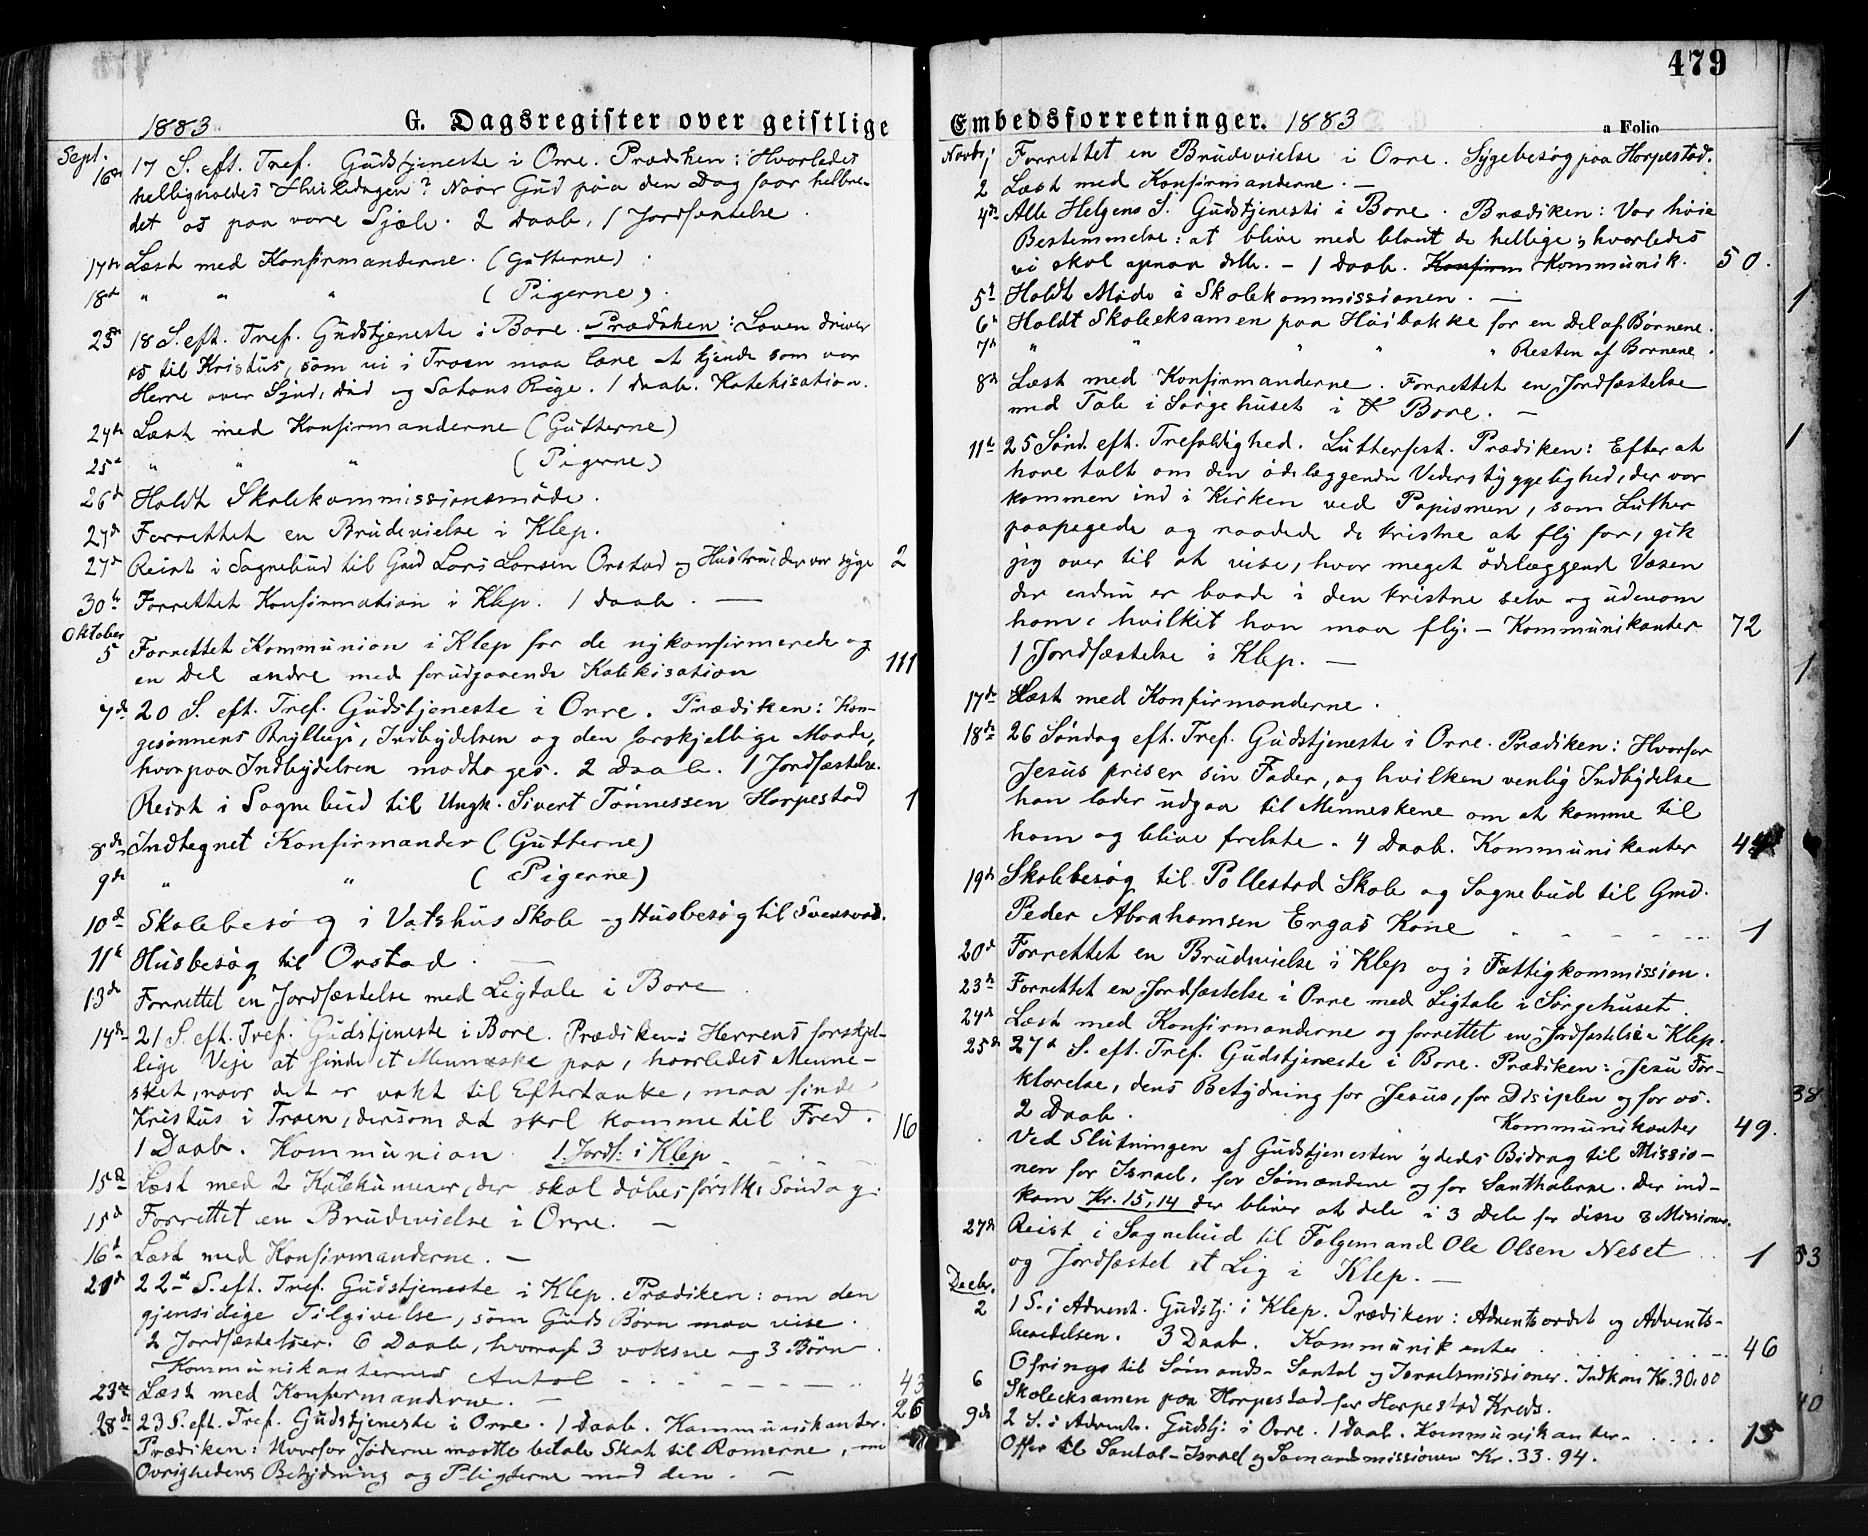 1883. G. Dagsregister over geistlige
Sept. 16de 17 S. eft. Tref. Gudstjeneste i Orre. Prædiken: Hvorledes
helligholdes Hviledagen? Naar Gud paa den Dag faar helbre-
det os paa vore Sjæle. 2 Daab, 1 Jordfæstelse.
17de Læst med Konfirmanderne. (Gutterne).
18de " " " (Pigerne).
23de 18 S. eft. Tref. Gudstjeneste i Bore. Prædiken: Loven driver
os til Kristus, som vi i Troen maa lære at kjende som vor
Herre over Synd, Død og Satans Rige. 1 Daab. Katekisation.
24de Læst med Konfirmanderne (Gutterne)
25de " " " (Pigerne)
26de Holdt Skolekommissionsmöde.
27de Forrettet en Brudevielse i Klep.
27de Reist i Sognebud til Gmd Lars Larsen Orstad og Hustru, der var syge 2
30te Forrettet Konfirmation i Klep. 1 Daab. —
Oktober
5 Forrettet Kommunion i Klep for de nykonfirmerede og
en Del andre med forudgaaende Katekisation 111
7de 20 S. eft. Tref. Gudstjeneste i Orre. Prædiken: Kon-
gesønnens Bryllup, Indbydelsen og den forskjellige Maade,
hvorpaa Indbydelsen modtages. 2 Daab. 1 Jordfæstelse.
Reist i Sognebud til Ungk. Sivert Tönnessen Horpestad 1
8de Indtegnet Konfirmander (Gutterne)
9de " " (Pigerne)
10de Skolebesøg i Vatshus Skole og Husbesøg til Svensvod.
11te Husbesøg til Orstad. —
13de Forrettet en Jordfæstelse med Ligtale i Bore
14de 21 S. eft. Tref. Gudstjeneste i Bore. Prædiken: Herrens forskjel-
lige Veje at finde et Menneske paa, hvorledes Menne-
sket, naar det er vakt til Eftertanke, maa finde
Kristus i Troen, dersom det skal komme til Fred.
1 Daab. Kommunion 1 Jordf: i Klep 16
15de Læst med 2 Katekumener, der skal døbes førstk. Söndag.
15de Forrettet en Brudevielse i Orre. —
16de Læst med Konfirmanderne. —
21de 22de S. eft. Tref. Gudstjeneste i Klep. Prædiken: om den
gjensidige Tilgivelse, som Guds Børn maa vise.
2 Jordfæstelser. 6 Daab, hvoraf 3 voksne og 3 Børn.
Kommunikanternes Antal 43
23de Læst med Konfirmanderne. —
28de 23 S. eft. Tref. Gudstjeneste i Orre. 1 Daab. Kommunikanter. 26
Prædiken: Hvorfor Jøderne maatte betale Skat til Romerne, om
Ovrighedens Betydning og Pligterne mod den. —
479
Embedsforretninger. 1883 a Folio
Novbr 1 Forrettet en Brudevielse i Orre. Sygebesøg paa Horpestad.
2 Læst med Konfirmanderne. —
4de Alle Helgens S. Gudstjeneste i Bore. Prædiken: Vor høie
Bestemmelse: at blive med blant de hellige; hvorledes
vi skal opnaa dette. — 1 Daab. Konfirm Kommunik. 50.
5te Holdt Møde i Skolekommissionen. — 1
6te Holdt Skoleeksamen paa Høibakke for en Del af Børnene.
7de " " " " " Resten af Børnene.
8de Læst med Konfirmanderne. Forrettet en Jordfæstelse
med Tale i Sørgehuset i K Bore. —
11te 25 Sønd. eft. Trefoldighed. Lutherfest. Prædiken: Efter at 1
have talt om den ødelæggende Vederstyggelighed, der var
kommen ind i Kirken ved Papismen, som Luther
paapegede og raadede de kristne at fly for, gik
jeg over til at vise, hvor meget ödelæggend Væsen
der endnu er baade i den kristne selv og udenom
ham, hvilket han maa fly. — Kommunikanter 72
1 Jordfæstelse i Klep. — 1
17de Læst med Konfirmanderne.
18de 26 Søndag eft. Tref. Gudstjeneste i Orre. Prædiken: Hvorfor
Jesus priser sin Fader, og hvilken venlig Indbydelse
han lader udgaa til Menneskene om at komme til
ham og blive frelste. 4 Daab. Kommunikanter 44
19de Skolebesøg til Pollestad Skole og Sognebud til Gmd.
Peder Abrahamsen Ergas Kone 1
20de Forrettet en Brudevielse i Klep og i Fattigkommission.
23de Forrettet en Jordfæstelse i Orre med Ligtale i Sørgehuset.
24de Læst med Konfirmanderne og forrettet en Jordfæstelse i Klep.
25de 27de S. eft. Tref. Gudstjeneste i Bore. Prædiken: Jesu For-
klarelse, dens Betydning for Jesus, for Disiplen og for os. 38
2 Daab. Kommunikanter 49.
Ved Slutningen af Gudstjenesten ydedes Bidrag til Missio-
nen for Israel, for Sømændene og for Santhalerne. Der ind-
kom Kr. 15,14 der bliver at dele i 3 Dele for disse 3 Missioner.
27de Reist i Sognebud til Følgemand Ole Olsen Neset
og Jordfæstet et Lig i Klep. — 1 53
Decbr.
2 1 S. i Advent. Gudstj: i Klep. Prædiken: Adventsordet og Advents-
beredelsen. 3 Daab. Kommunikanter 46
Ofringe til Sömands- Santal og Israelsmissioner. Indkom Kr. 30,00
6 Skoleeksamen paa Horpestad for Horpestad Kreds. 40
9de 2 S. i Advent. Gudstj: i Orre. 1 Daab. Kommunikanter 15
Offer til Santal-Israel og Sømandsmissionen Kr. 33.94.